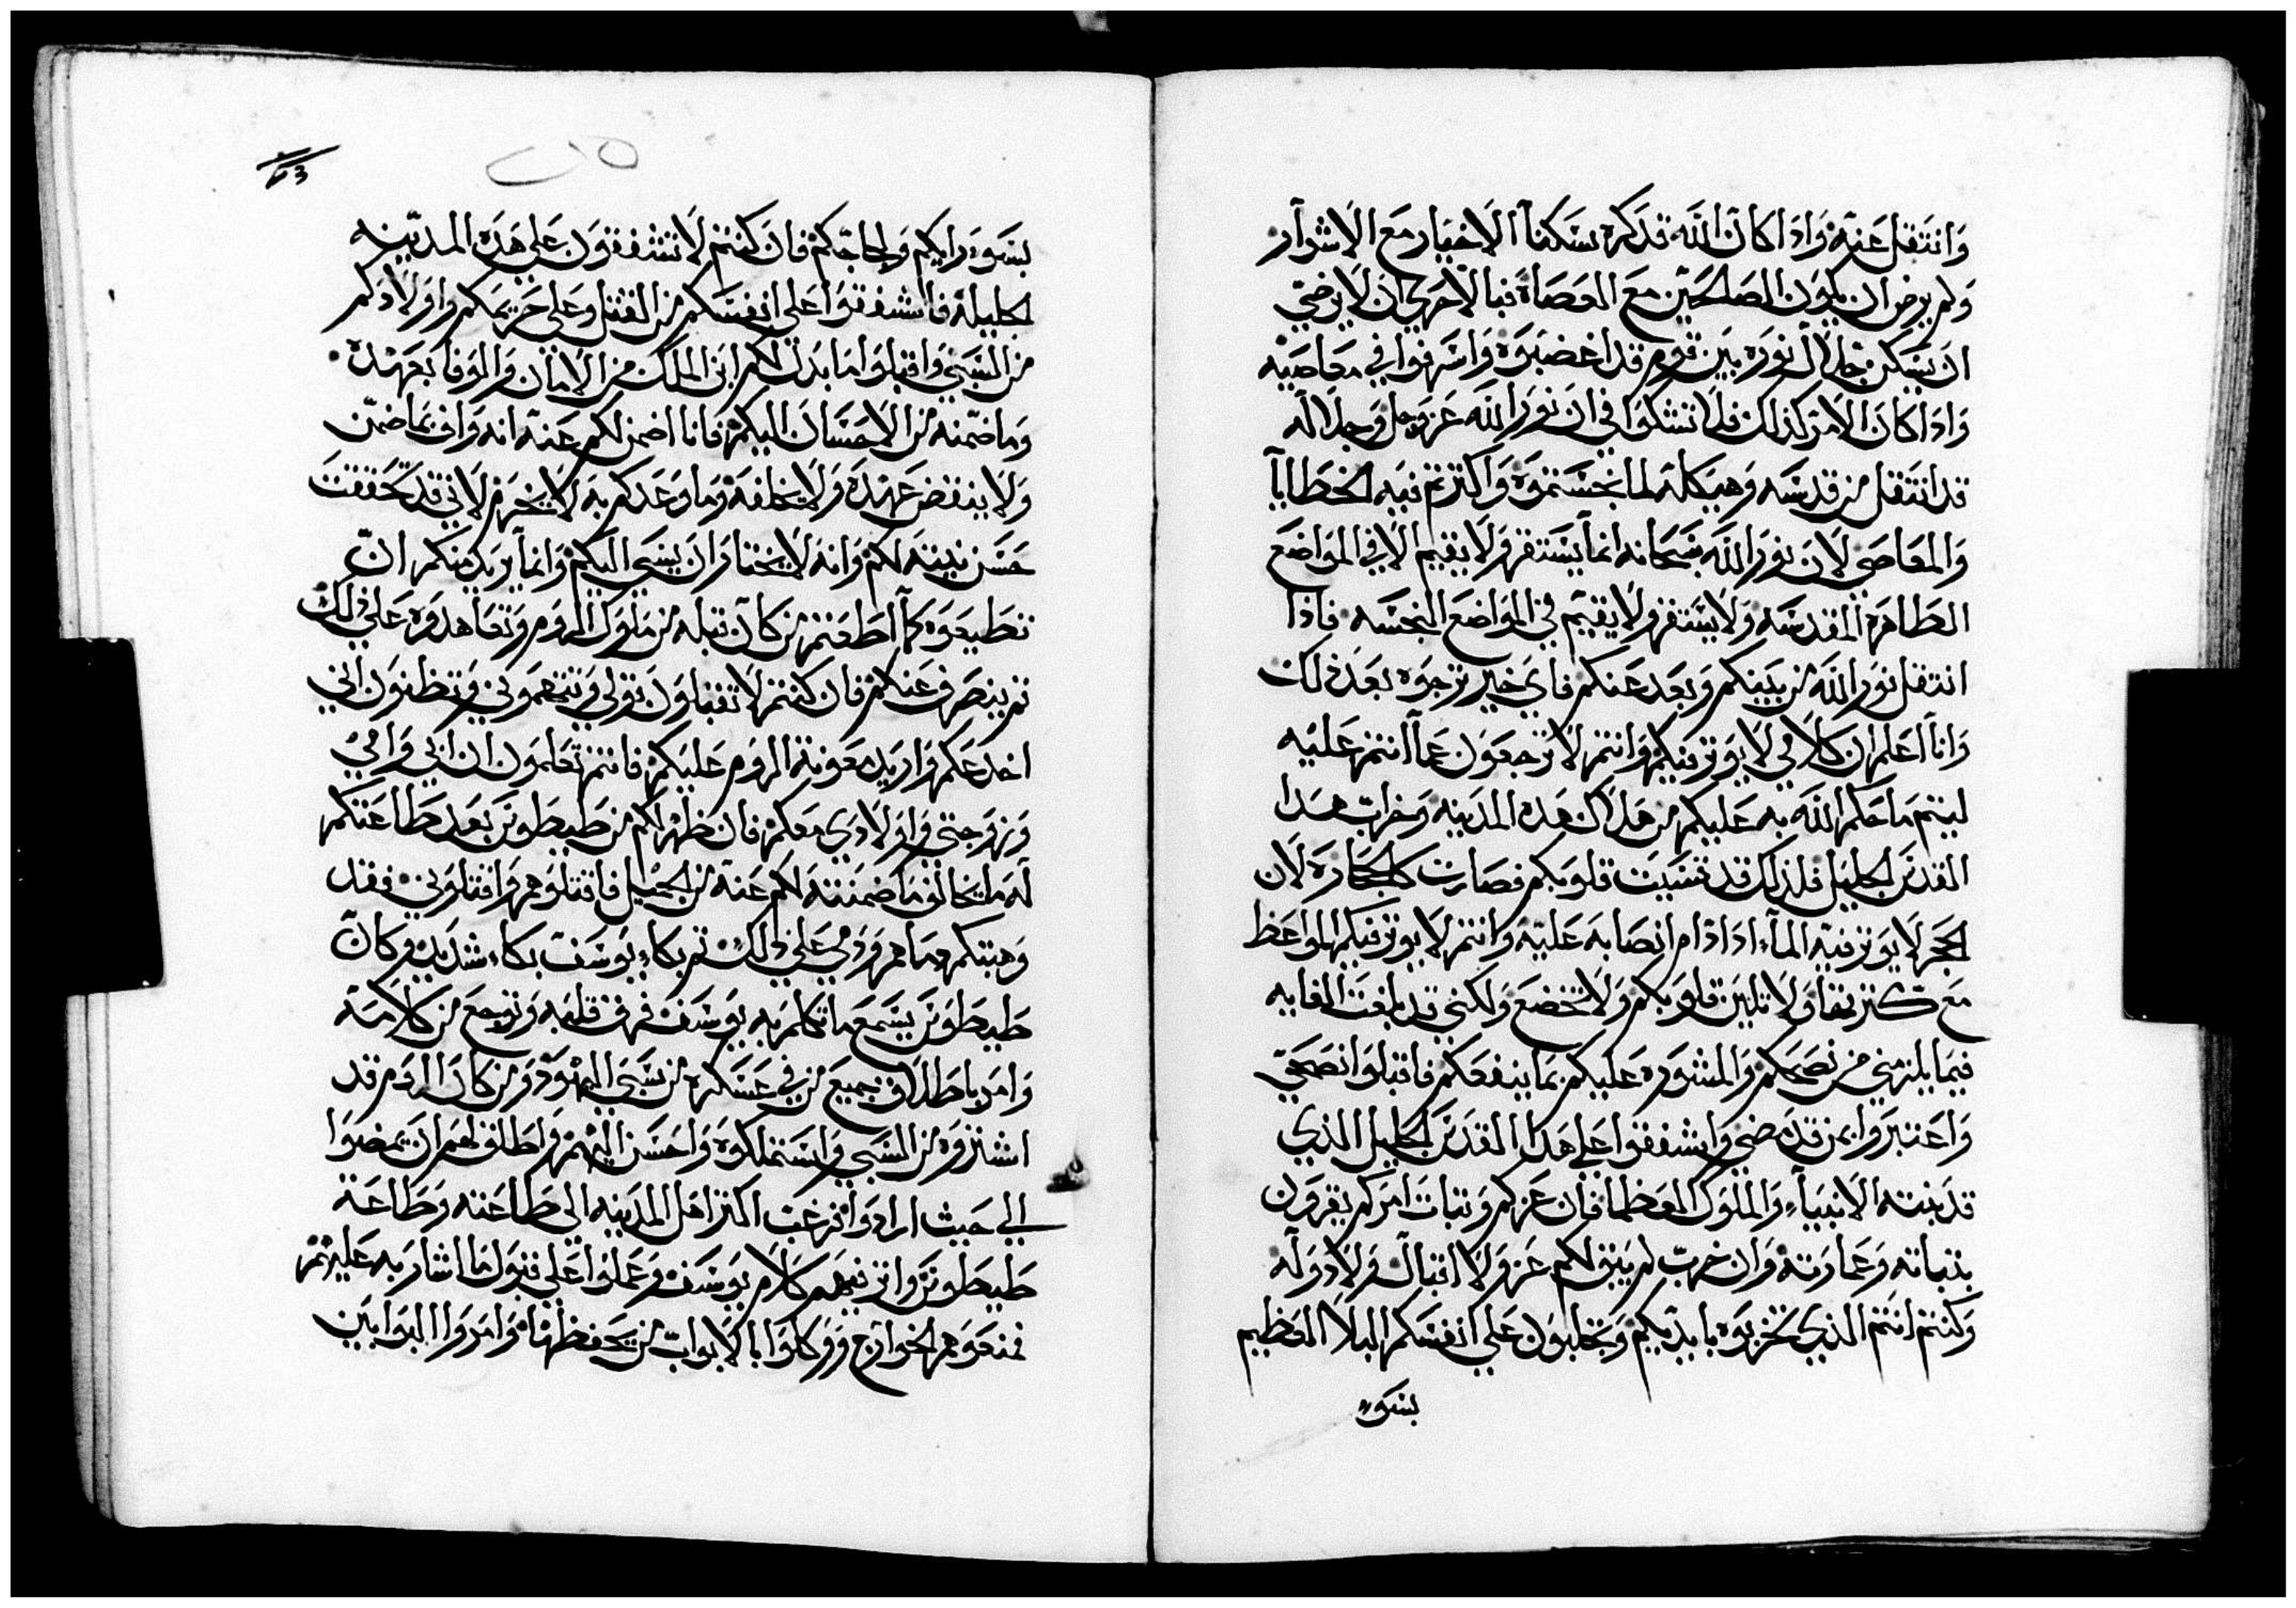 وانتقل عنه واذا كان الله قد كره سكنا الاخيار مع الاشرار
ولم يرض ان يكون الصالحين مع العصاة فبالاحري ان لا يرضي
ان يسكن جلال نوره بين قوم قد اغضبوه واسرفوا في معاصيه
واذا كان الامر كذلك فلا تشكوا في ان نور الله عز وجل وجلاله
قد انتقل من قدسه وهيكله لما نجستموه واكثرتم فيه الخطايا
والمعاصي لان نور الله سبحانه انما يستقر ولا يقيم الا في المواضع
الطاهره المقدسه ولا يستقر ولا يقيم في المواضع النجسه فاذا
انتقل نور الله من بينكم وبعد عنكم فاي خير ترجوه بعد ذلك
وانا اعلم ان كلامي لا يوثر فيكم وانتم لا ترجعون عما انتم عليه
ليتم ما حكم الله به عليكم من هلاك هده المدينه وخراب هدا
القدس الجليل فلذلك قد قسيت قلوبكم فصارت كالحجاره لان
الحجر لا يوثر فيه الماء اذا دام انصابه عليه وانتم لا يوثر فيكم المواعظ
مع كثرتها ولا تلين قلوبكم ولا تخضع ولكني قد بلغت الغايه
فيما يلزمني من نصحكم والمشوره عليكم بما ينفعكم فاقبلوا نصحي
واعتبروا بمن قد مضي واشفقوا علي هدا القدس الجليل الذي
قد بنته الانبياء والملوك العظما فان عزكم وثبات امركم يقرون
بثباته وعمارته وان خرب لم يبق لكم عز ولا اقبال ولا دوله
وكنتم انتم الذي تخربوه بايديكم وتجلبون علي انفسكم البلا العظيم
بسو
بسو رايكم ولجاجتكم فان كنتم لا تشفقون علي هذه المدينه
الجليله فاشفقوا علي انفسكم من القتل وعلي حريمكم واولادكم
من السبي واقبلوا ما بدل لكم ابن الملك من الامان والوفا بعهده
وما ضمنه من الاحسان اليكم فانا اضمن لكم عنه انه واف بما ضمن
ولا ينقض عهده ولا يخلفه وما وعدكم به لا يخرم لاني قد تحققت
حسن نيته لكم وانه لا يختار ان يسي اليكم وانما يريد منكم ان
تطيعوه كما اطعتم من كان قبله من ملوك الروم وتعاهدوه علي ذلك
ثم ينصرف عنكم فان كنتم لا تقبلون قولي وتتهموني وتظنون اني
اخدعكم واريد معونة الروم عليكم فانتم تعلمون ان ابي وامي
وزوجتي واولادي معكم فان ظهر لكم من طيطوس بعد طاعتكم
له ما يخالف ما ضمنته لكم عنه من الجميل فاقتلوهم واقتلوني فقد
وهبتكم دماهم ودمي علي ذلك ثم بكا يوسف بكاء شديد وكان
طيطوس يسمع ما تكلم به يوسف فرق قلبه وتوجع من كلامه
وامر باطلاق جميع من في عسكره من سبي اليهود ومن كان الروم قد
اشتروه من السبي واستملكوه واحسن اليهم واطلق لهم ان يمضوا
الي حيث ارادوا فرغب اكثر اهل المدينه الي طاعته وطاعة
طيطوس واثر فيهم كلام يوسف وعملوا علي قبول ما اشار به عليهم
فمنعوهم الخوارج ووكلوا بالابواب من يحفظها وامروا البوابين